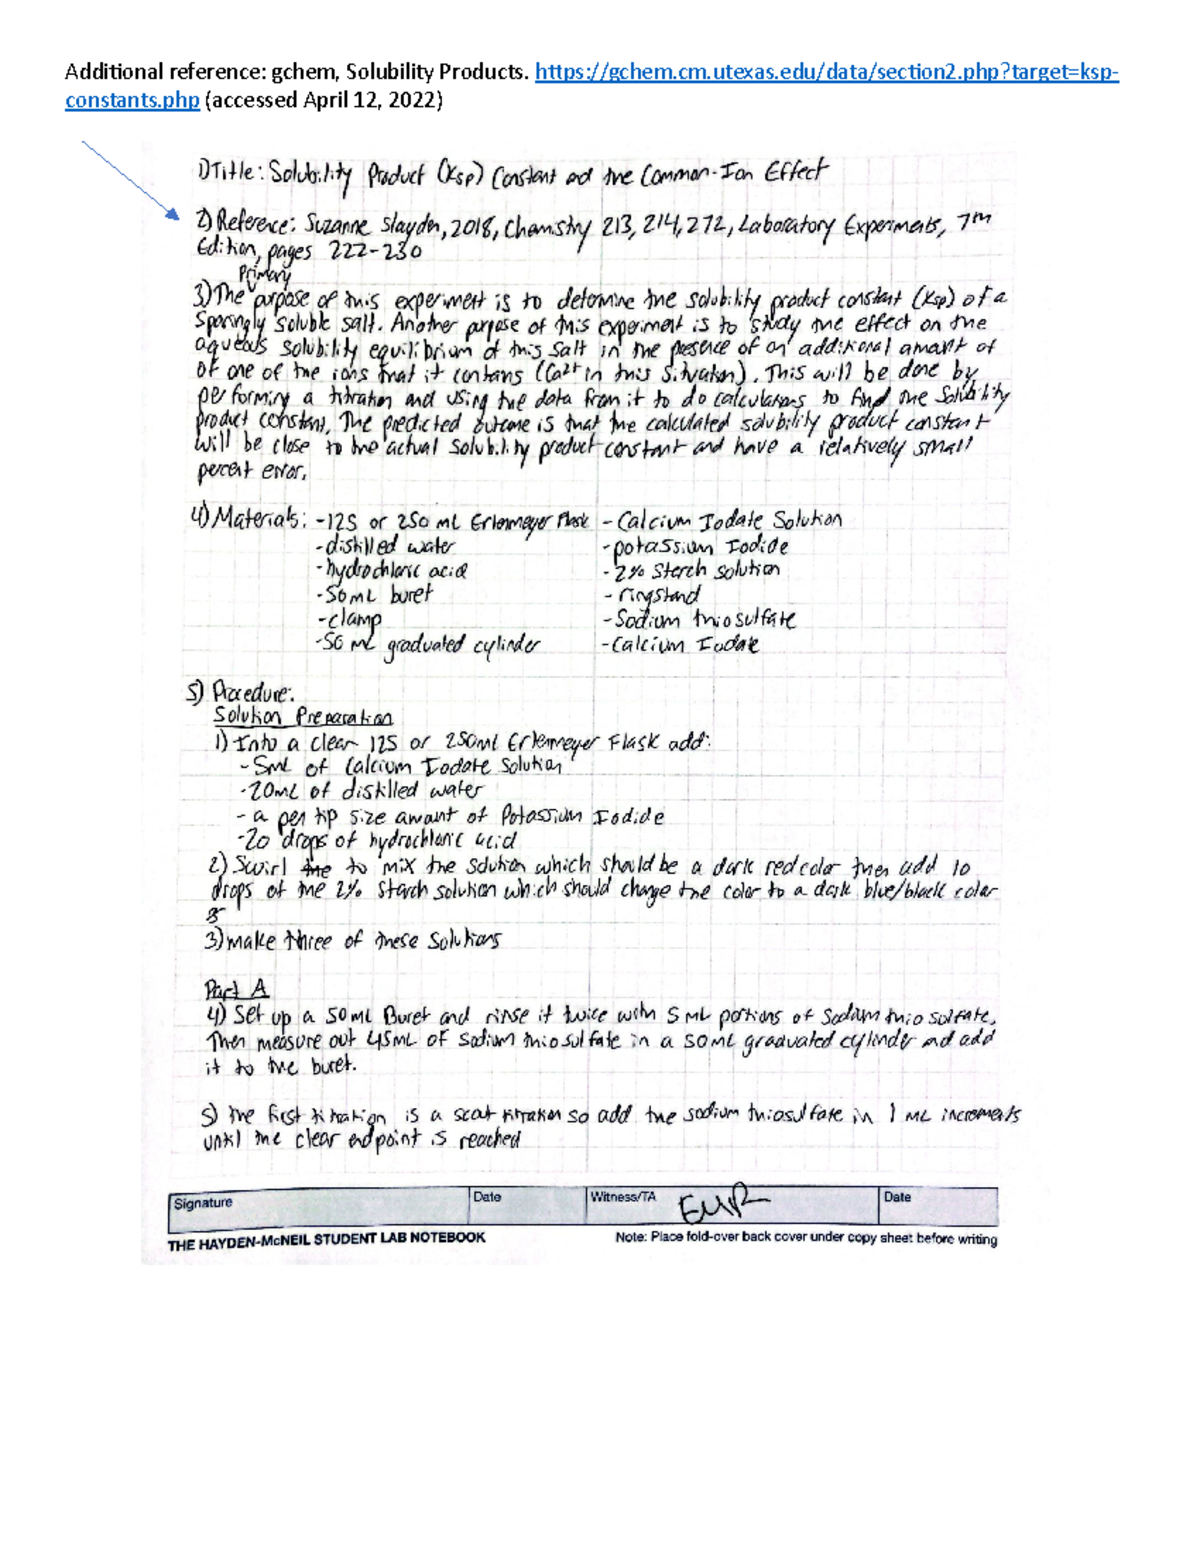 Additional reference: gchem, Solubility Products. https://gchem.cm.utexas.edu/data/section2.php?target=ksp-
constants.php (accessed April 12, 2022)
1) Title: Solubility Product (Ksp) Constant and the Common-Ion Effect
2) Reference: Suzanne Slayden, 2018, Chemistry 213, 214, 272, Laboratory Experiments, 7th
Edition, pages 222-230
Primary
3) The purpose of this experiment is to determine the solubility product constant (Ksp) of a
Sparingly soluble salt. Another purpose of this experiment is to study the effect on the
aqueous solubility equilibrium of this salt in the presence of an additional amount of
of one of the ions that it contains (Ca2+ in this situation). This will be done by
performing a titration and using the data from it to do calculations to find the Solubility
product constant. The predicted outcome is that the calculated solubility product constant
will be close to the actual solubility product constant and have a relatively small
percent error.
4) Materials: -125 or 250 mL Erlenmeyer Flask - Calcium Iodate Solution
-distilled water -potassium Iodide
-hydrochloric acid -2% Starch solution
-50mL buret - ringstand
-clamp -Sodium thiosulfate
-50 mL graduated cylinder -Calcium Iodate
5) Procedure:
Solution Preparation
1) Into a clean 125 or 250ml Erlenmeyer Flask add:
-5mL of Calcium Iodate Solution
-20mL of distilled water
- a pen tip size amount of Potassium Iodide
-20 drops of hydrochloric acid
2) Swirl the to mix the solution which should be a dark red color then add 10
drops of the 2% Starch solution which should change the color to a dark blue/black color
3) make three of these Solutions
Part A
4) Set up a 50mL Buret and rinse it twice with 5mL portions of Sodium thiosulfate.
Then measure out 45mL of sodium thiosulfate in a 50mL graduated cylinder and add
it to the buret.
5) The first titration is a scout titration so add the sodium thiosulfate in 1 mL increments
until the clear endpoint is reached
Signature Date Witness/TA Date
THE HAYDEN-McNEIL STUDENT LAB NOTEBOOK Note: Place fold-over back cover under copy sheet before writing